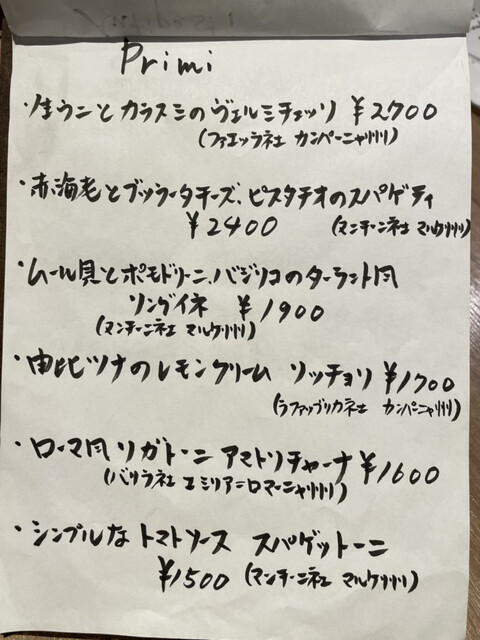 Primi
・生ウニとカラスミのヴェルミチェッリ ¥2700
(ファエッラ社 カンパーニャ州)
・赤海老とブッラータチーズ、ピスタチオのスパゲティ
¥2400 (マンチーニ社 マルケ州)
・ムール貝とポモドリーニ、バジリコのターラント風
リングイネ ¥1900
(マンチーニ社 マルケ州)
・由比ツナのレモンクリーム リッチョリ ¥1700
(ラファッブリカ社 カンパニャ州)
・ローマ風リガトーニ アマトリチャーナ ¥1600
(バリラ社 エミリア=ロマーニャ州)
・シンプルなトマトソース スパゲットーニ
¥1500 (マンチーニ社 マルケ州)